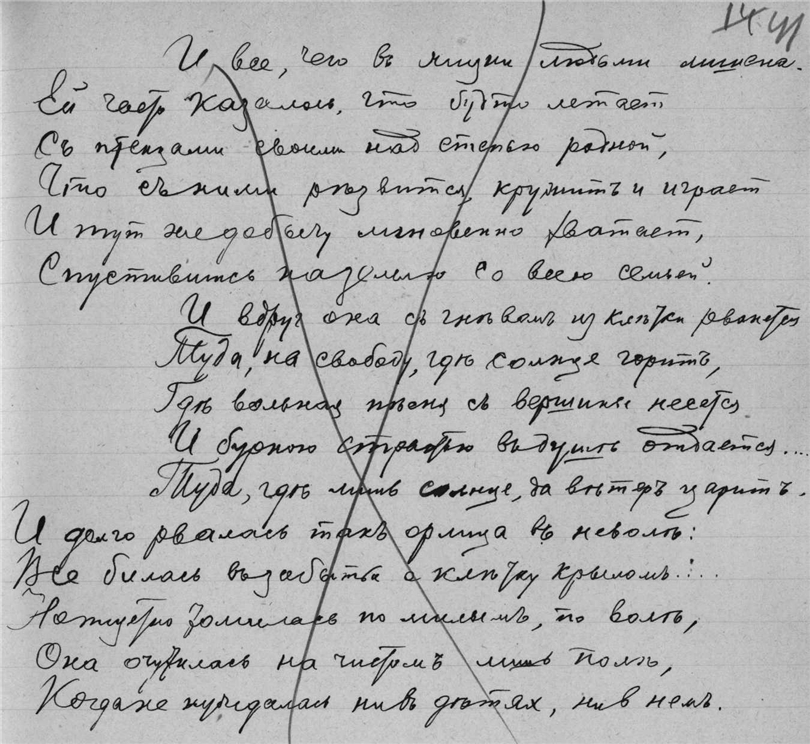 И все, чего въ жизни людьми лишена.
Ей часто казалось, что будто летает
Съ птенцами своими над степью родной,
Что съ ними рѣзвится, кружитъ и играет
И тут же добычу мгновенно хватает,
Спустившись на землю со всею семьей.
И вдруг она съ гнѣвомъ из клѣтки рванется
Туда, на свободу, гдѣ солнце горитъ,
Гдѣ вольная пѣсня съ вершины несется
И бурною страстью въ душѣ отдается...
Туда, гдѣ лишь солнце, да вѣтеръ царитъ.
И долго рвалась такъ орлица въ неволѣ:
Все билась въ забытьи о клѣтку крыломъ...
По милымъ, по волѣ,
Она очутилась на чистомъ лишь полѣ,
Когда не нуждалась ни въ дѣтях, ни в немъ.